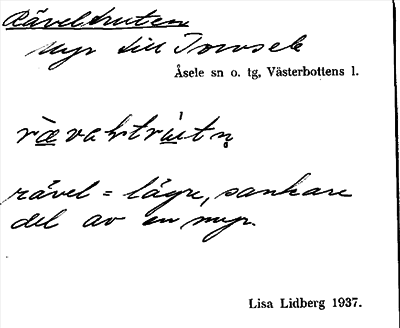 Räveltruten
myr till Torvsele
Åsele sn o. tg, Västerbottens l.
rävel = lägre, sankare
del av en myr.
Lisa Lidberg 1937.